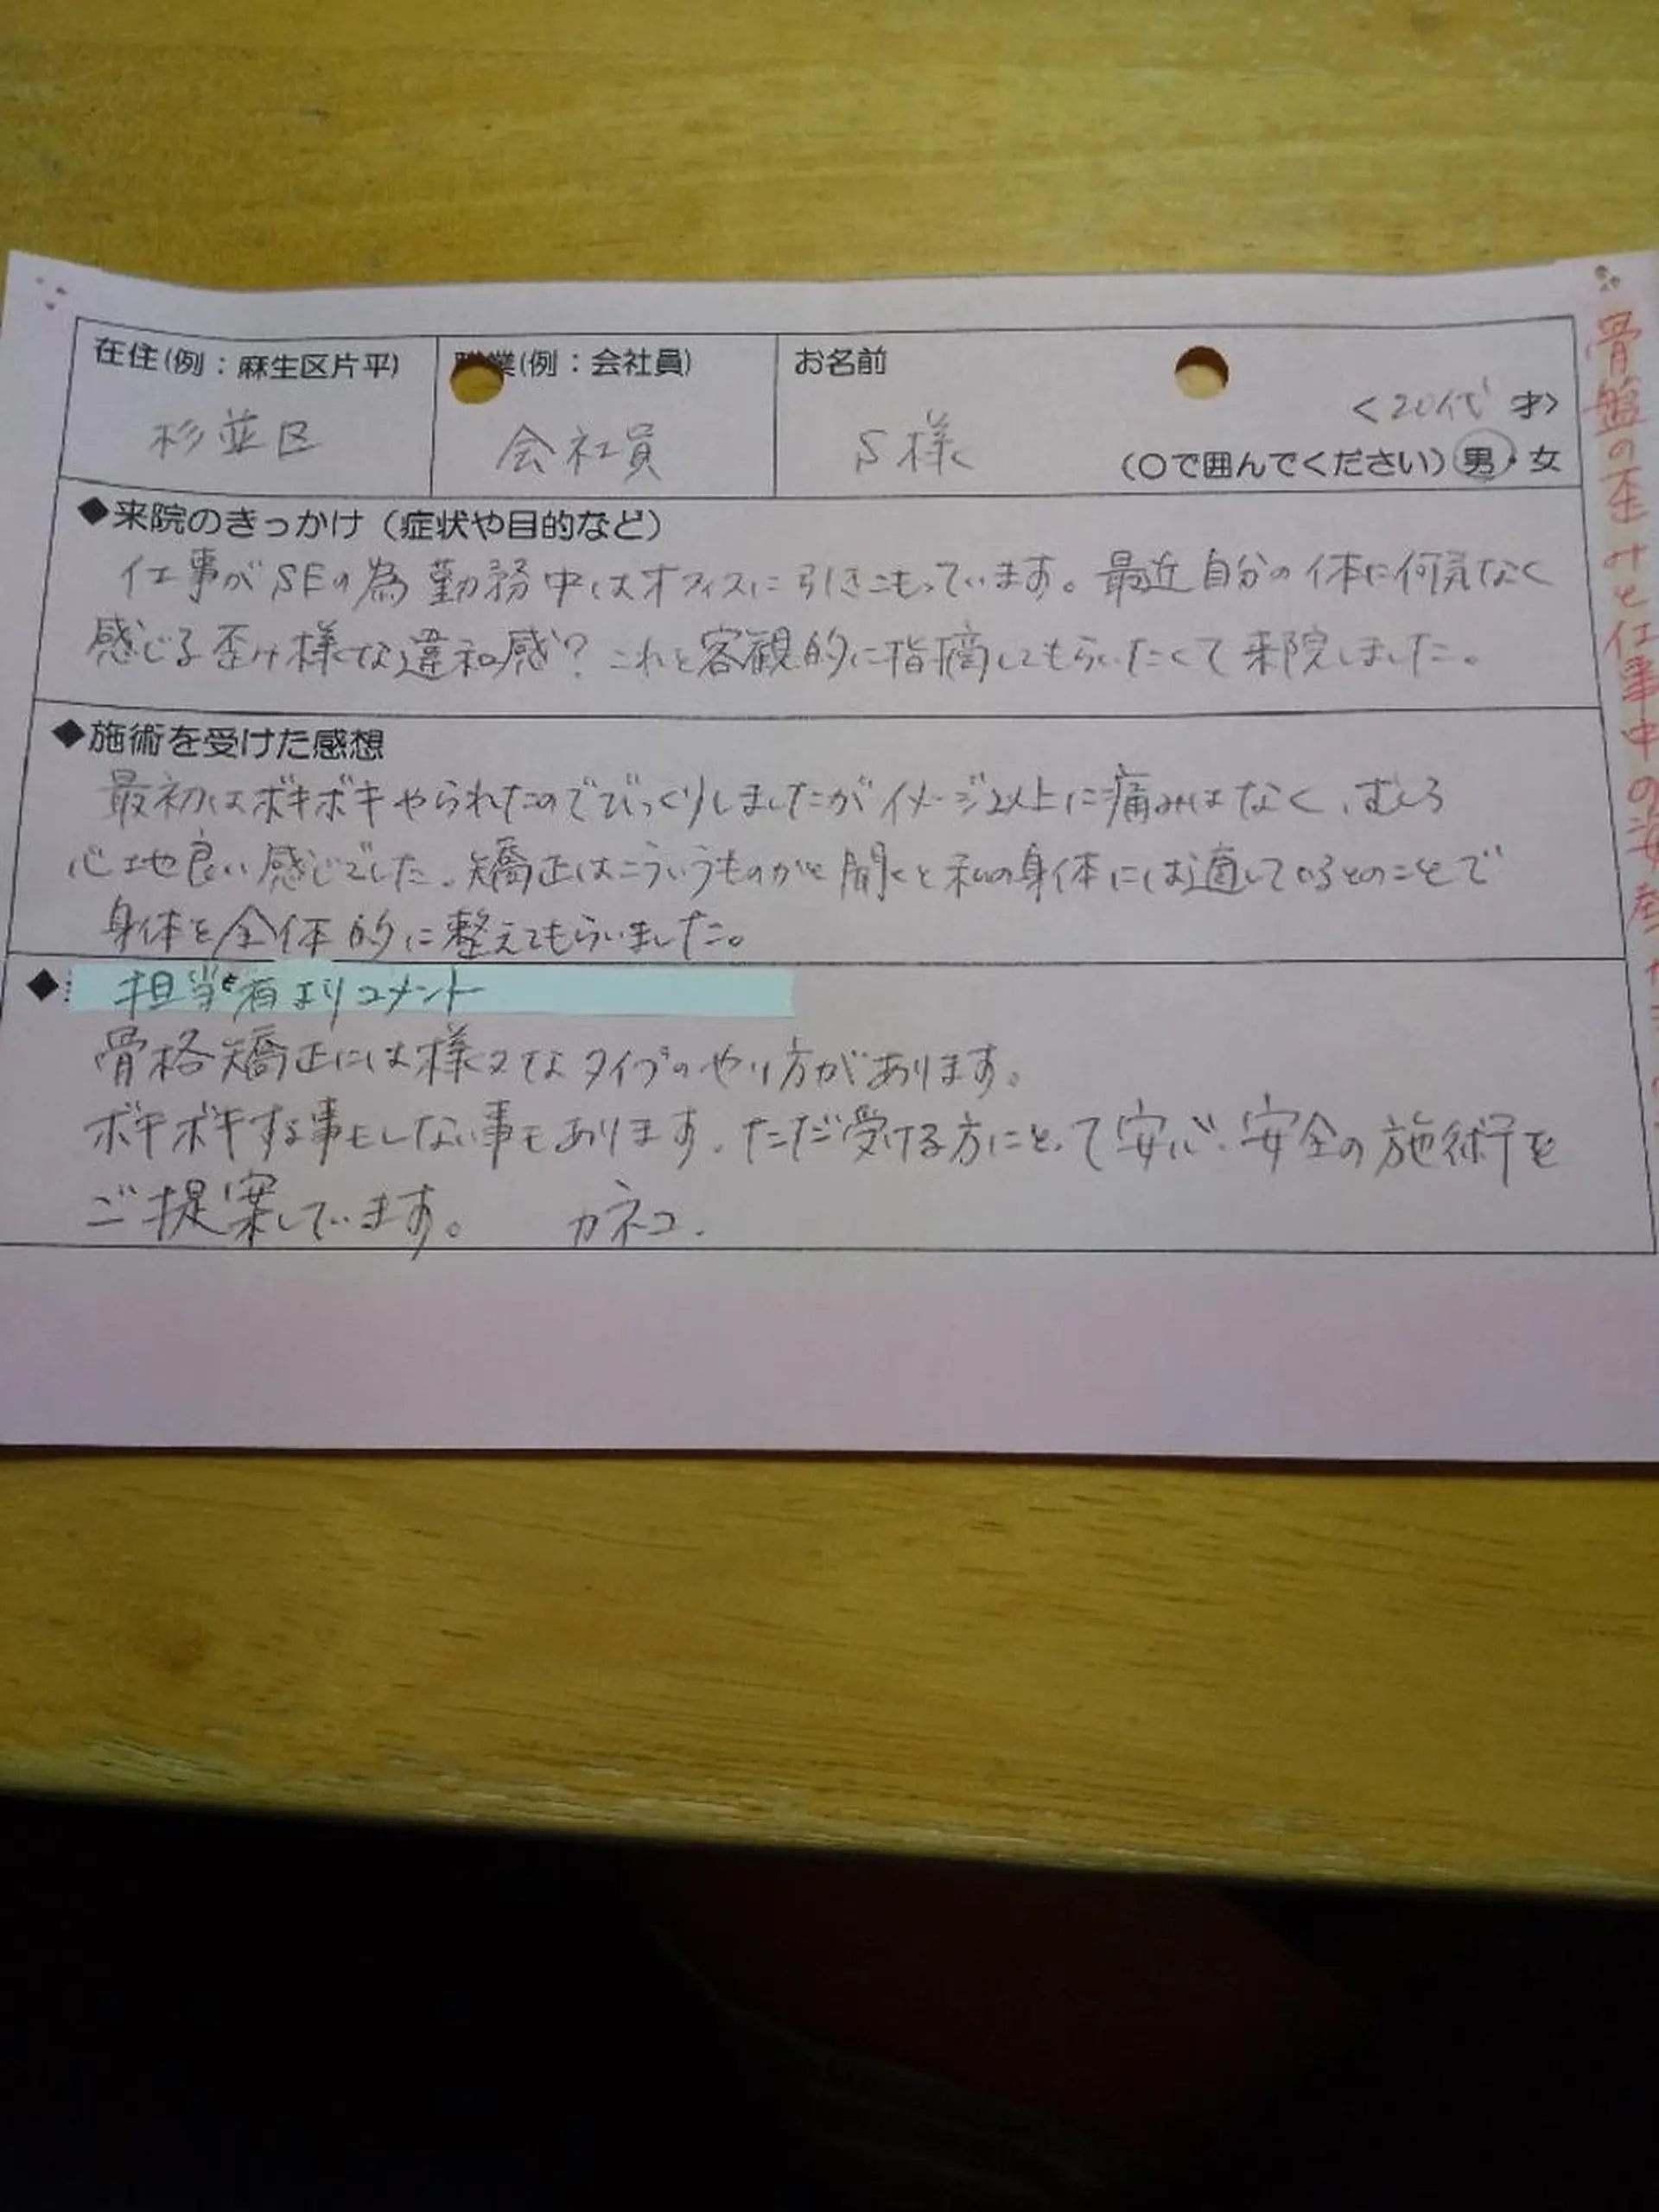 在住(例：麻生区片平)
杉並区
業(例：会社員)
会社員
お名前
S様
<20代 才>
(〇で囲んでください) 男・女
◆来院のきっかけ（症状や目的など）
仕事がSEの為勤務中はオフィスに引きこもっています。最近自分の体に何気なく
感じる歪み様な違和感？これを客観的に指摘してもらいたくて来院しました。
◆施術を受けた感想
最初はボキボキやられたのでびっくりしましたがイメージ以上に痛みはなく、むしろ
心地良い感じでした。矯正はこういうものかと聞くと私の身体には適しているとのことで
身体を全体的に整えてもらいました。
◆担当者よりコメント
骨格矯正には様々なタイプのやり方があります。
ボキボキする事もしない事もあります。ただ受ける方にとって安心・安全の施術を
ご提案しています。 カネコ.
骨盤の歪みと仕事中の姿